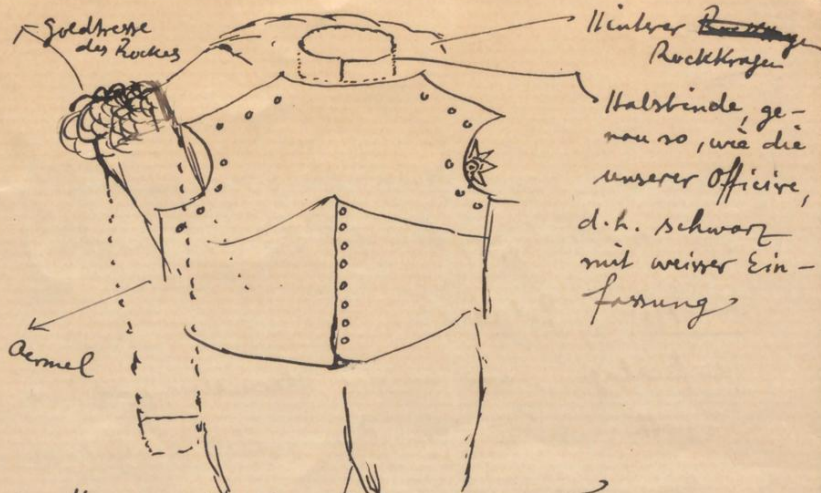 Goldtresse
des Rockes
Hinterer
Rockkragen
Halsbinde, ge-
nau so, wie die
unserer Officire,
d.h. schwarz
mit weisser Ein-
fassung
Aermel